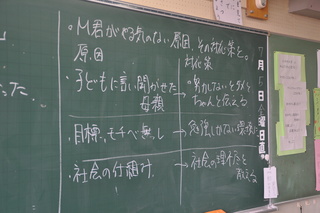 ・M君がやる気のない原因、その対策を。
原因
対策
・子どもに言い聞かせた
母親
ちゃんと伝える
・目標、モチベ無し
→勉強しかない環境に
・社会の仕組み
→社会の理不尽を
教える
7月6日金曜日直
た.